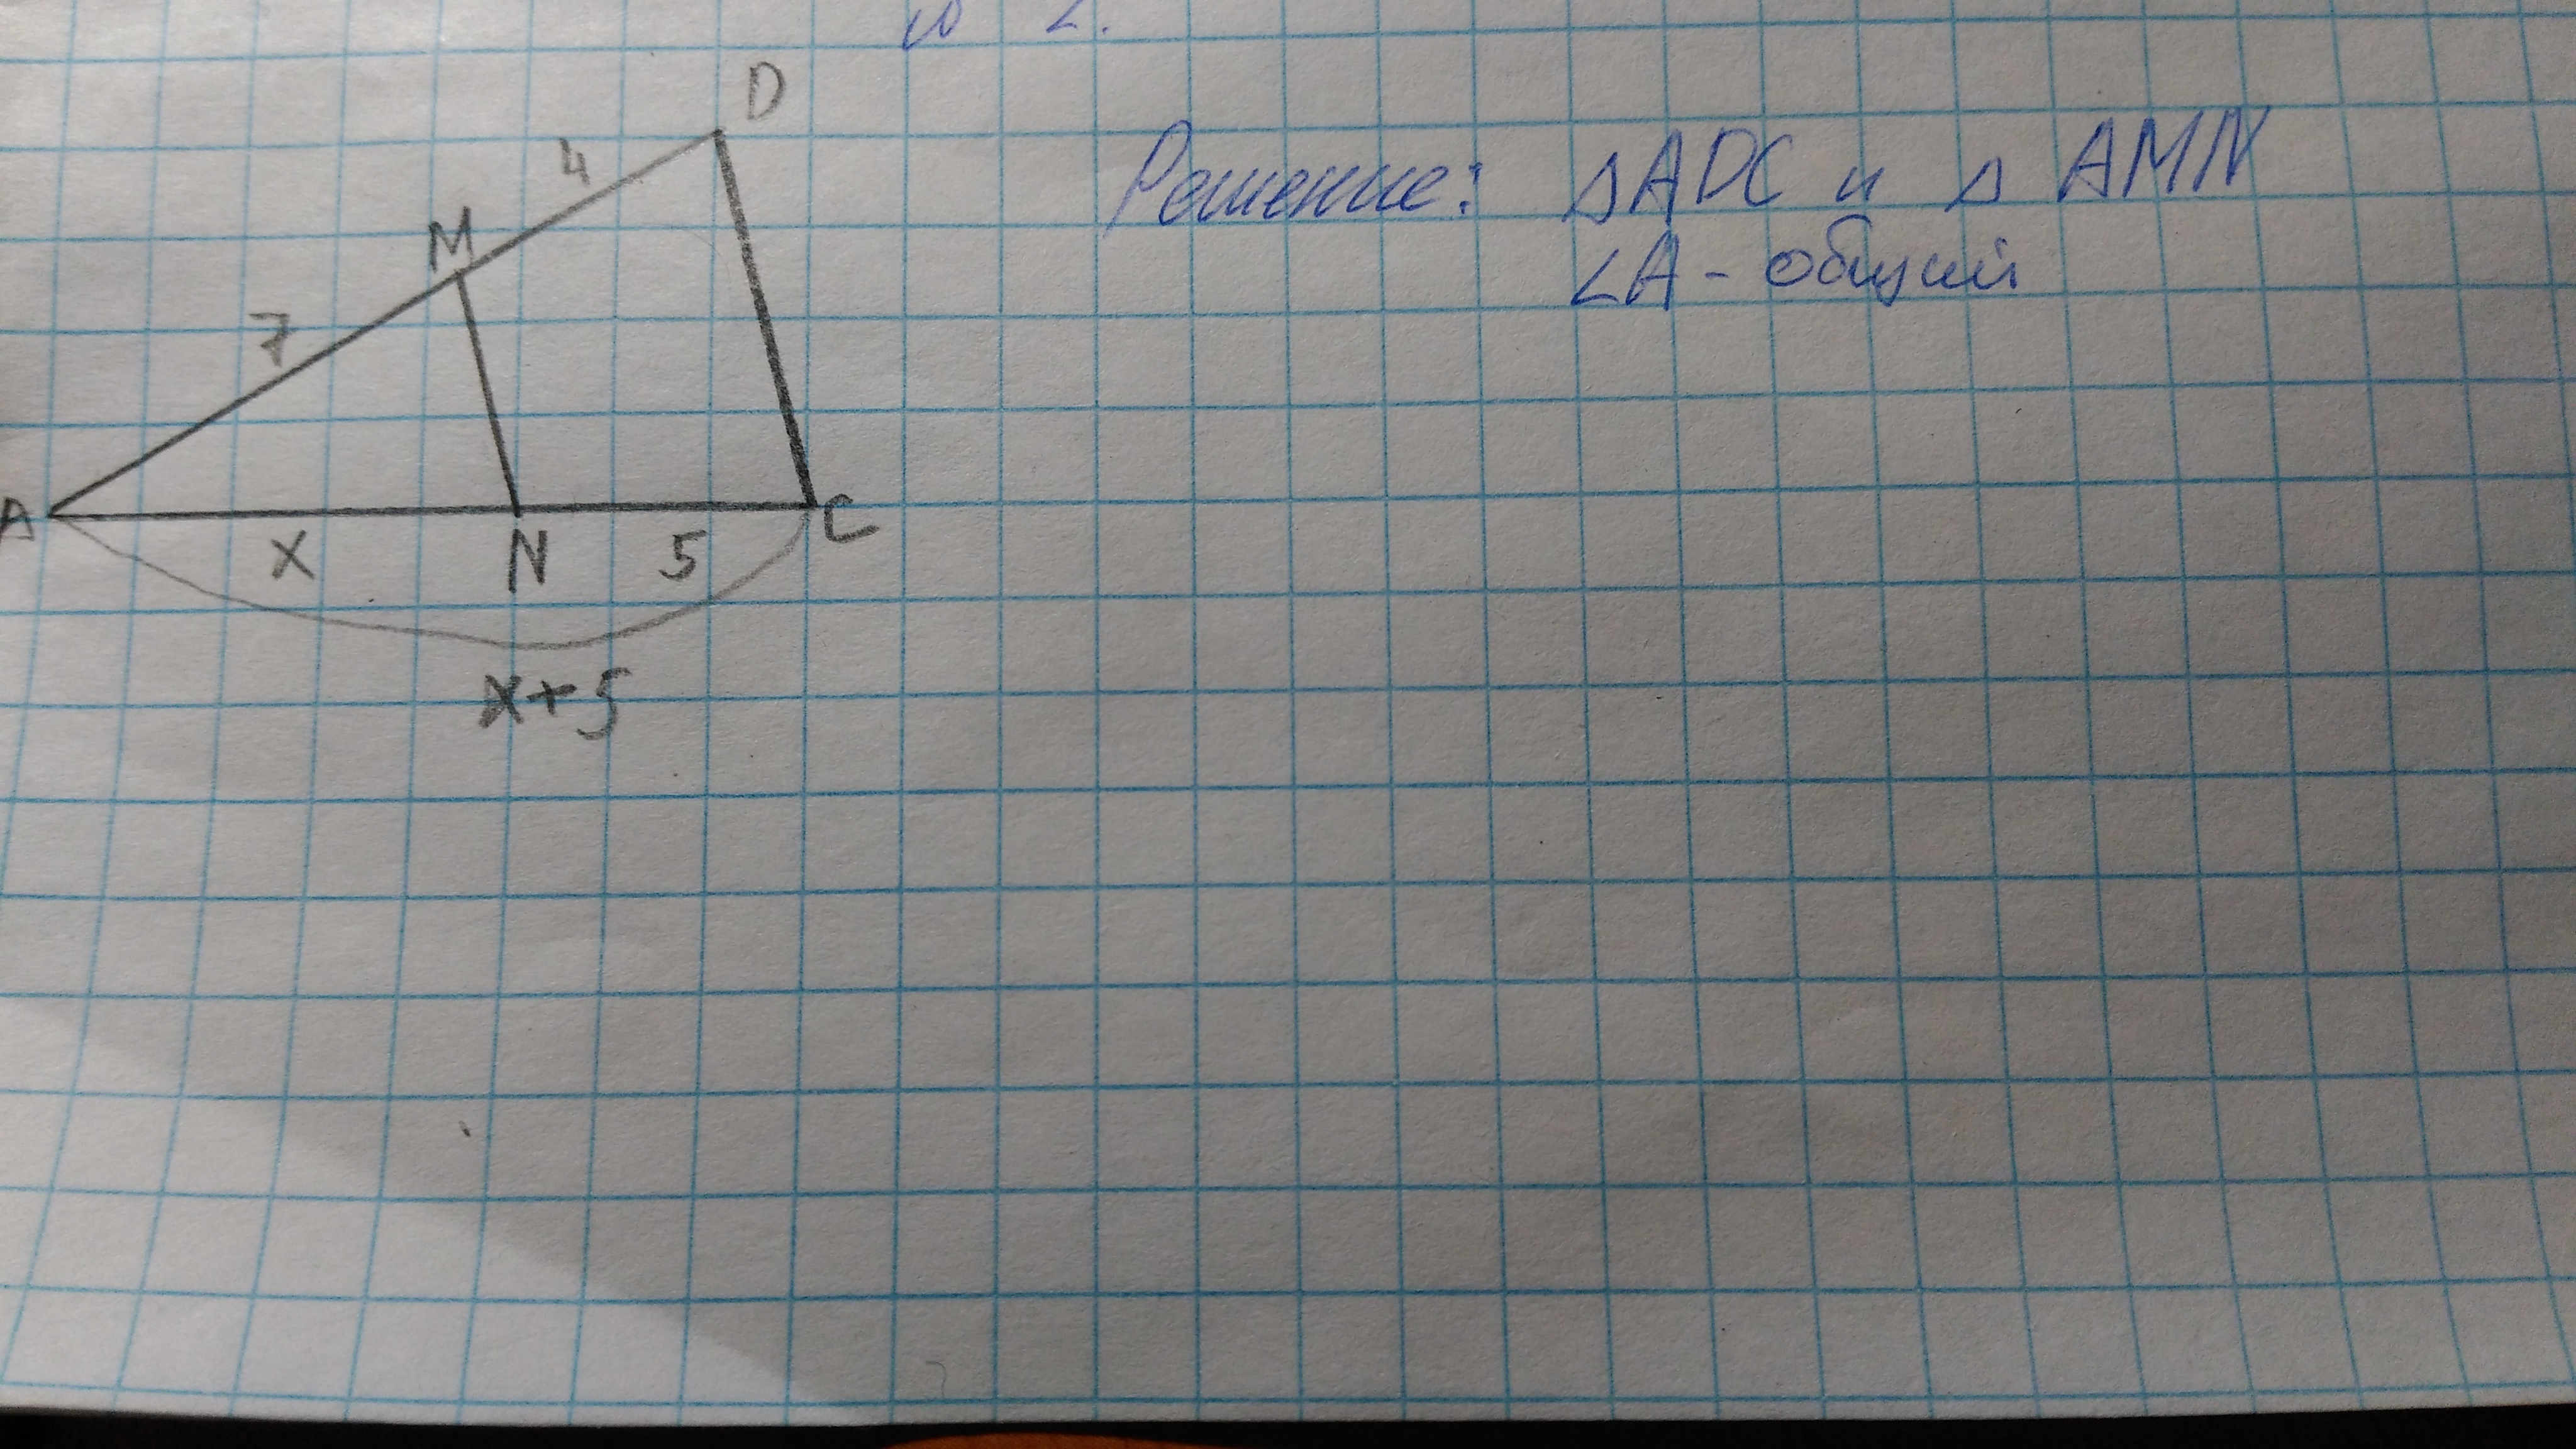 D
4
M
7
A
x
N
5
C
x+5
Решение: ΔADC и Δ AMN
∠A - общий